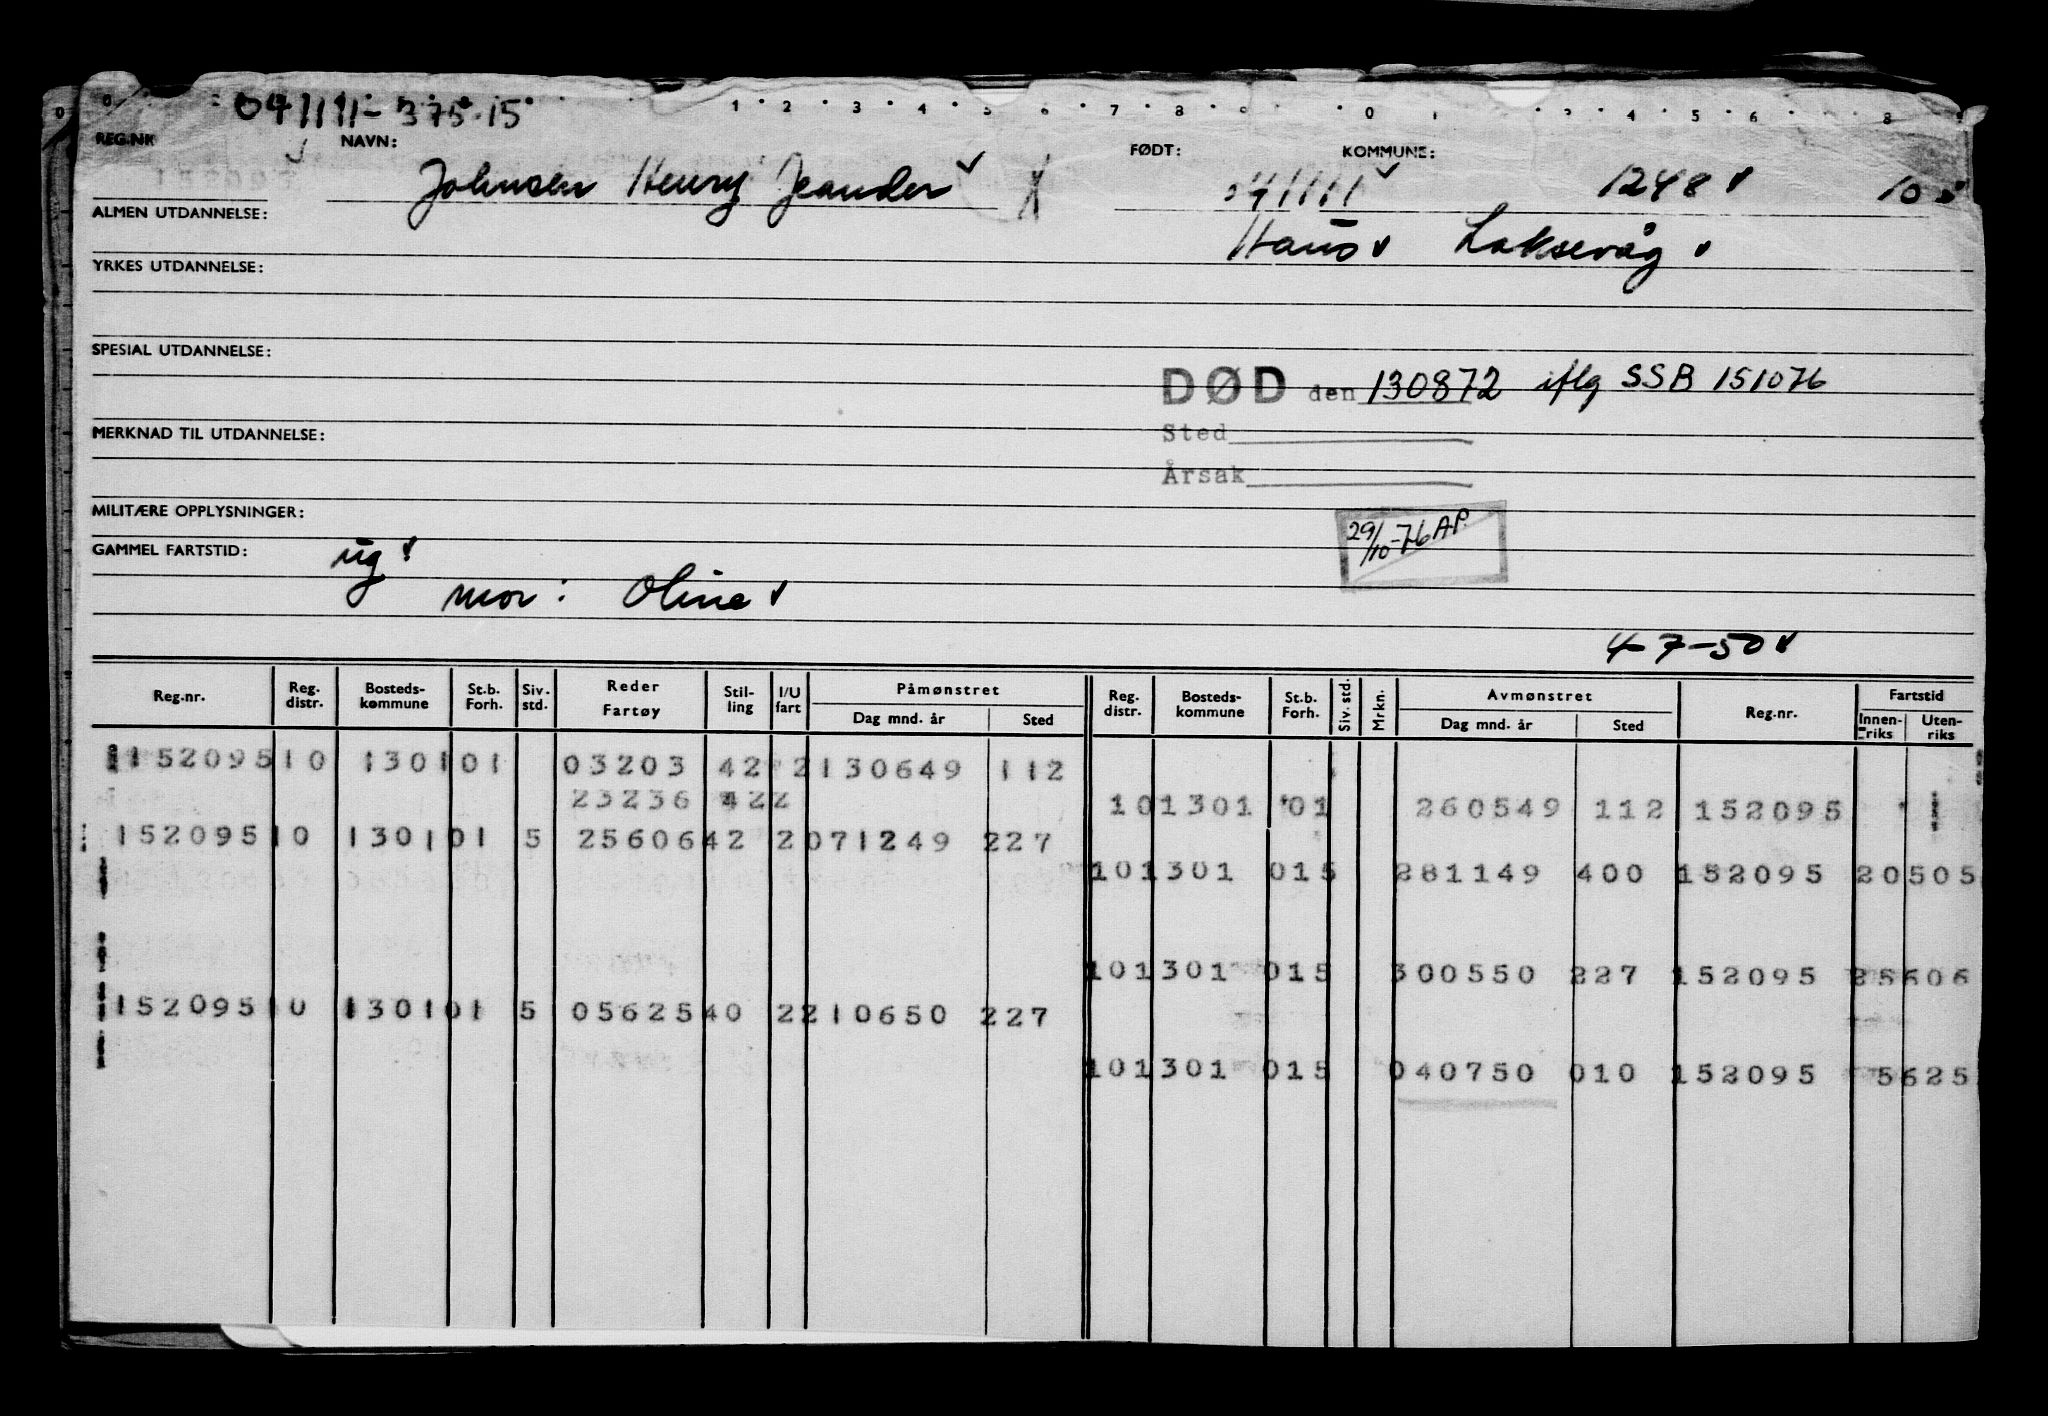 041111-375.15
REG.NR NAVN: FØDT: KOMMUNE:
Johnsen Henry Jeander 041111 1248 10
ALMEN UTDANNELSE:
Haus Laksevåg
YRKES UTDANNELSE:
SPESIAL UTDANNELSE:
DØD den 130872 iflg SSB 151076
Sted
MERKNAD TIL UTDANNELSE:
Årsak
MILITÆRE OPPLYSNINGER:
29/10-76 AP
GAMMEL FARTSTID: ug
mor: Oline
4-7-50
Reg.nr. Reg. distr. Bosteds-kommune St.b. Forh. Siv. std. Reder Fartøy Stil-ling I/U fart Påmønstret Dag mnd. år Sted Reg. distr. Bosteds-kommune St.b. Forh. Siv. std. Mrkn. Avmønstret Dag mnd. år Sted Reg.nr. Fartstid Innen-riks Uten-riks
152095 10 1301 01 03203 42 2 130649 112
23236 42 2 10 1301 01 260549 112 152095
152095 10 1301 01 5 25606 42 2 071249 227
10 1301 01 5 281149 400 152095 20505
10 1301 01 5 300550 227 152095 25606
152095 10 1301 01 5 05625 40 2 210650 227
10 1301 01 5 040750 010 152095 5625